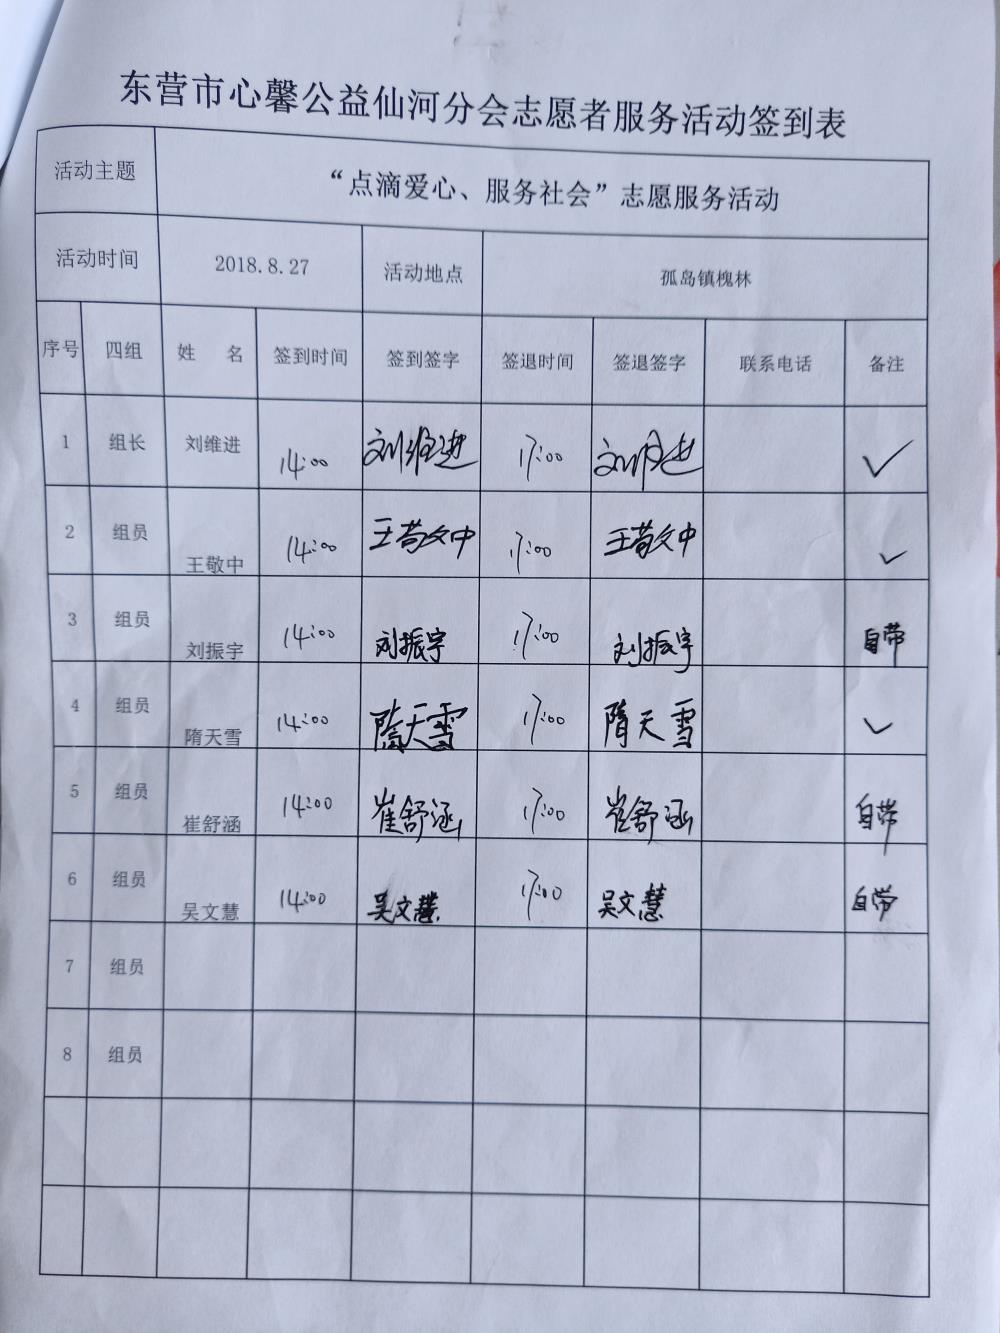 东营市心馨公益仙河分会志愿者服务活动签到表
活动主题 “点滴爱心、服务社会”志愿服务活动
活动时间 2018.8.27 活动地点 孤岛镇槐林
序号 四组 姓 名 签到时间 签到签字 签退时间 签退签字 联系电话 备注
1 组长 刘维进 14:00 刘维进 17:00 刘维进 ✓
2 组员 王敬中 14:00 王敬中 17:00 王敬中 ✓
3 组员 刘振宇 14:00 刘振宇 17:00 刘振宇 自带
4 组员 隋天雪 14:00 隋天雪 17:00 隋天雪 ✓
5 组员 崔舒涵 14:00 崔舒涵 17:00 崔舒涵 自带
6 组员 吴文慧 14:00 吴文慧 17:00 吴文慧 自带
7 组员
8 组员